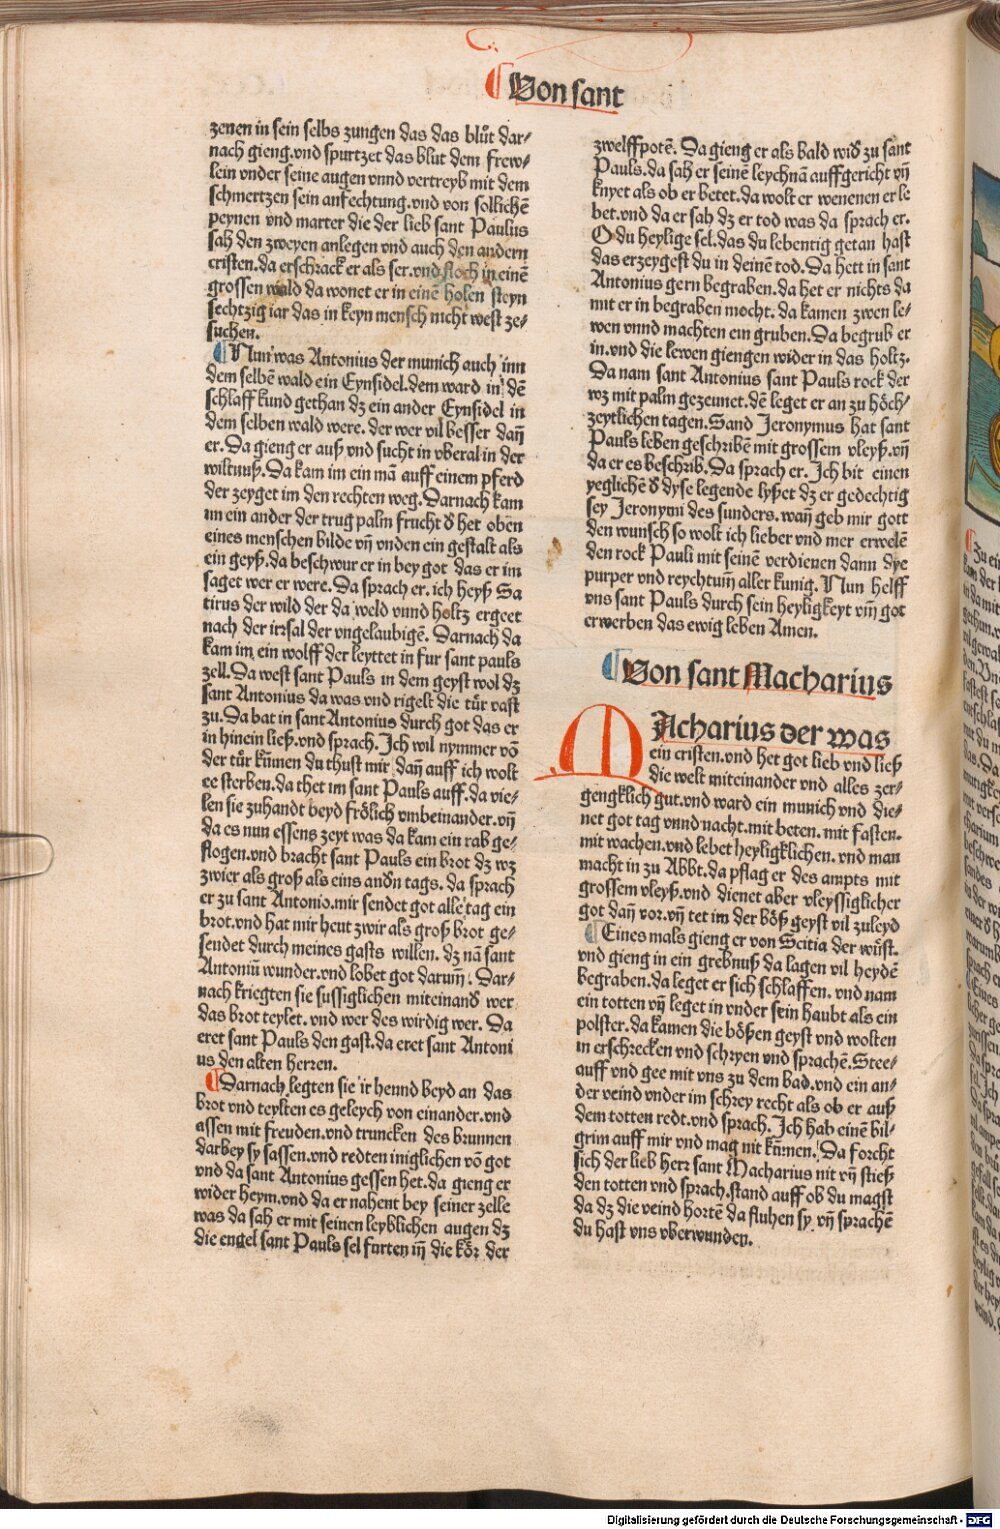 Von sant
zenen in sein selbs zungen das das blůt dar⸗
nach gieng.vnd spurtzet das blut dem frew⸗
lein vnder seine augen vnnd vertreyb mit dem
schmertzen sein anfechtung.vnd von sollichē
peynen vnd marter die der lieb sant Paulus
sah den zweyen anlegen vnd auch den andern
cristen.da erschrack er als ser.vnd floch in einē
grossen wald da wonet er in einē holen steyn
sechtzig iar das in keyn mensch nicht west ze⸗
suchen.
¶ Nun was Antonius der munich auch inn
dem selbē wald ein Eynsidel.dem ward in dē
schlaff kund gethan dz ein ander Eynsidel in
dem selben wald were. der wer vil besser dañ
er. Da gieng er auß vnd sucht in vberal in der
wiltnuß. Da kam im ein mā auff einem pferd
der zeyget im den rechten weg. Darnach kam
im ein ander der trug palm frucht d̕ het oben
eines menschen bilde vñ vnden ein gestalt als
ein geyß.da beschwur er in bey got das er im
saget wer er were. Da sprach er. ich heyß Sa
tirus der wild der da weld vnnd holtz ergeet
nach der irrsal der vngelaubigē. Darnach da
kam im ein wolff der leyttet in fur sant pauls
zell. Da west sant Pauls in dem geyst wol dz
sant Antonius da was vnd rigelt die tür vast
zu. Da bat in sant Antonius durch got das er
in hinein ließ.vnd sprach. Ich wil nymmer vō
der tür kūmen du thust mir dañ auff ich wolt
ee sterben.da thet im sant Pauls auff.da vie⸗
len sie zuhandt beyd frölich vmbeinander.vñ
da es nun essens zeyt was da kam ein rab ge⸗
flogen.vnd bracht sant Pauls ein brot dz wz
zwier als groß als eins andn̄ tags. da sprach
er zu sant Antonio.mir sendet got alle tag ein
brot.vnd hat mir heut zwir als groß brot ge⸗
sendet durch meines gasts willen. dz nā sant
Antoniū wunder.vnd lobet got darum̄. Dar⸗
nach kriegten sie sussiglichen miteinand̕ wer
das brot teylet. vnd wer des wirdig wer. Da
eret sant Pauls den gast.da eret sant Antoni
us den alten herren.
¶ Darnach legten sie ir hennd beyd an das
brot vnd teylten es geleych von einander.vnd
assen mit freuden.vnd truncken des brunnen
darbey sy sassen.vnd redten iniglichen vō got
vnd da sant Antonius gessen het.da gieng er
wider heym.vnd da er nahent bey seiner zelle
was da sah er mit seinen leyblichen augen dz
die engel sant Pauls sel furten in̄ die kör der
zwelffpotē. Da gieng er als bald wid̕ zu sant
Pauls.da sah er seinē leychnā auffgericht vñ
knyet als ob er betet.da wolt er wenenen er le
bet.vnd da er sah dz er tod was da sprach er.
O du heylige sel.das du lebentig getan hast
das erzeygest du in deinē tod. Da hett in sant
Antonius gern begraben.da het er nichts da
mit er in begraben mocht. da kamen zwen le⸗
wen vnnd machten ein gruben. Da begrub er
in.vnd die lewen giengen wider in das holtz.
Da nam sant Antonius sant Pauls rock der
wz mit palm gezeunet.dē leget er an zu höch⸗
zeytlichen tagen. Sand Jeronymus hat sant
Pauls leben geschribē mit grossem vleyß.vñ
da er es beschrib. Da sprach er. Ich bit einen
yeglichē d̕ dyse legende lyßet dz er gedechtig
sey Jeronymi des sunders. wañ geb mir gott
den wunsch so wolt ich lieber vnd mer erwelē
den rock Pauli mit seinē verdienen dann dye
purper vnd reychtum̄ aller kunig. Nun helff
vns sant Pauls durch sein heyligkeyt vm̄ got
erwerben das ewig leben Amen.
¶ Von sant Macharius
MAcharius der was
ein cristen.vnd het got lieb vnd ließ
die welt miteinander vnd alles zer⸗
gengklich gut.vnd ward ein munich vnd die⸗
net got tag vnnd nacht.mit beten. mit fasten.
mit wachen.vnd lebet heyligklichen. vnd man
macht in zu Abbt.da pflag er des ampts mit
grossem vleyß.vnd dienet aber vleyssiglicher
got dañ vor.vñ tet im der böß geyst vil zuleyd
¶ Eines mals gieng er von Scitia der wüst.
vnd gieng in ein grebnuß da lagen vil heydē
begraben.da leget er sich schlaffen. vnd nam
ein totten vñ leget in vnder sein haubt als ein
polster.da kamen die bößen geyst vnd wolten
in erschrecken vnd schryen vnd sprachē. Stee⸗
auff vnd gee mit vns zu dem bad.vnd ein an⸗
der veind vnder im schrey recht als ob er auß
dem totten redt.vnd sprach. Ich hab einē bil⸗
grim auff mir vnd mag nit kūmen. Da forcht
sich der lieb herr sant Macharius nit vñ stieß
den totten vnd sprach.stand auff ob du magst
da dz die veind hortē da fluhen sy vñ sprachē
du hast vns vberwunden.
Digitalisierung gefördert durch die Deutsche Forschungsgemeinschaft - DFG